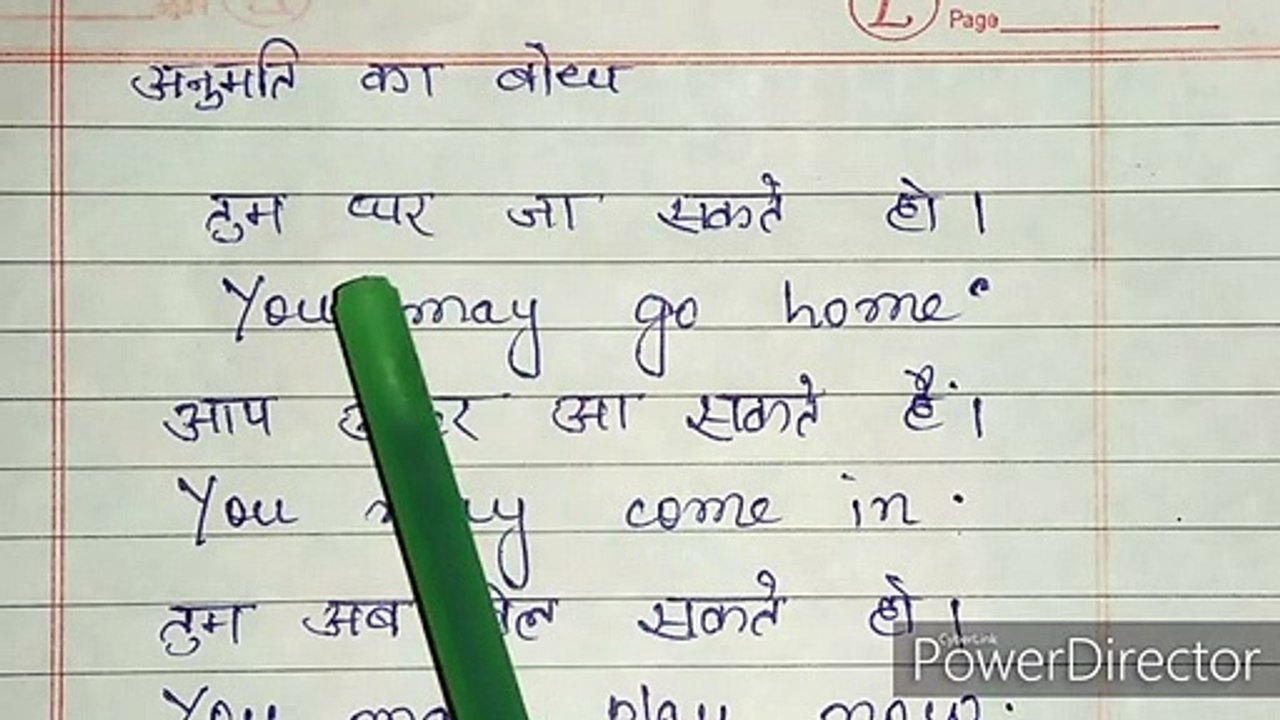 L Page
अनुमति का बोध
तुम घर जा सकते हो।
You may go home.
आप आ सकते हैं।
You may come in.
तुम अब सकते हो।
You play now.
CyberLink
PowerDirector